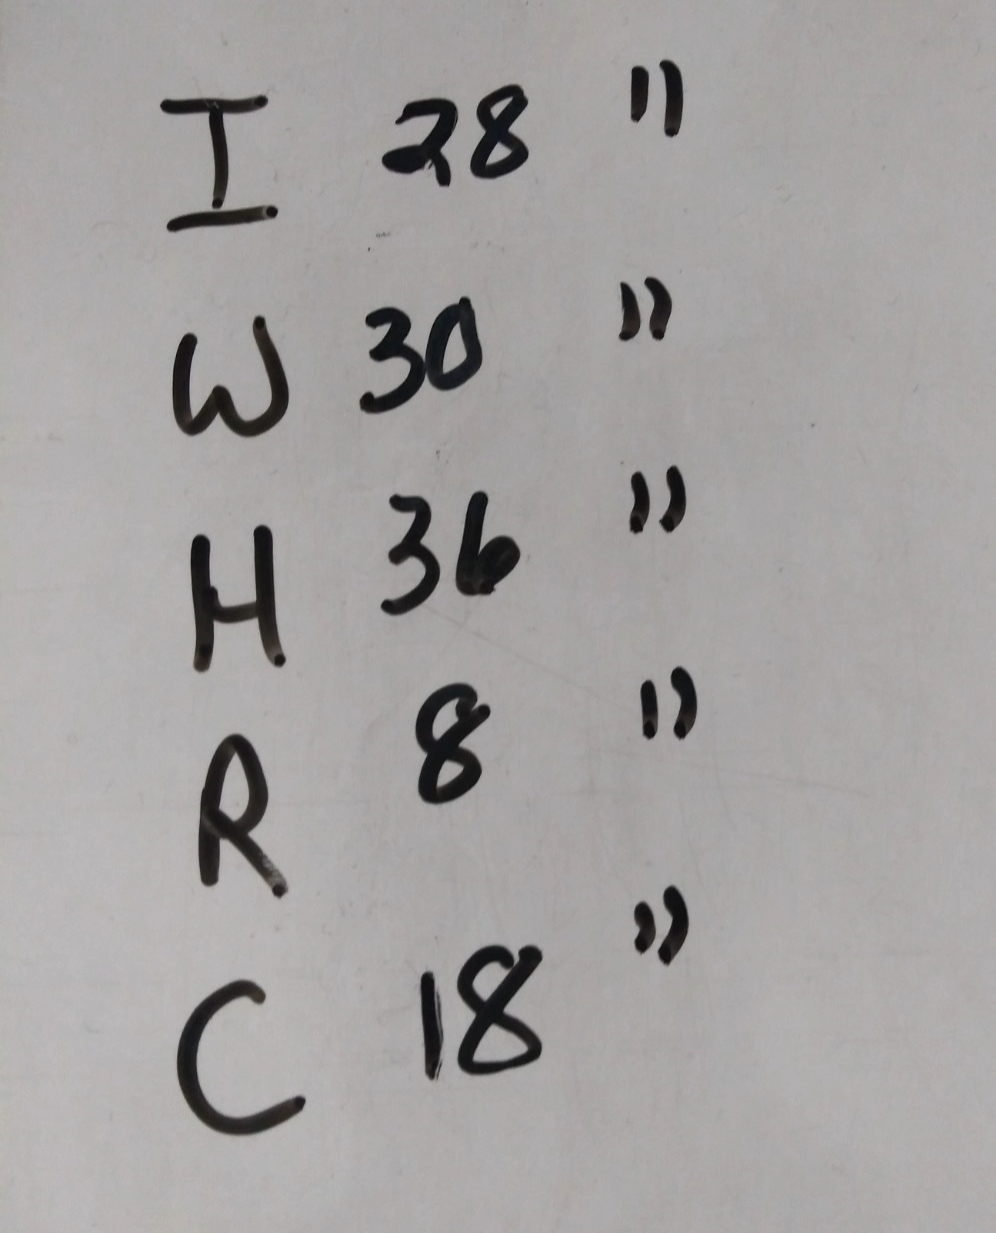 I 28 "
W 30 "
H 36 "
R 8 "
C 18 "